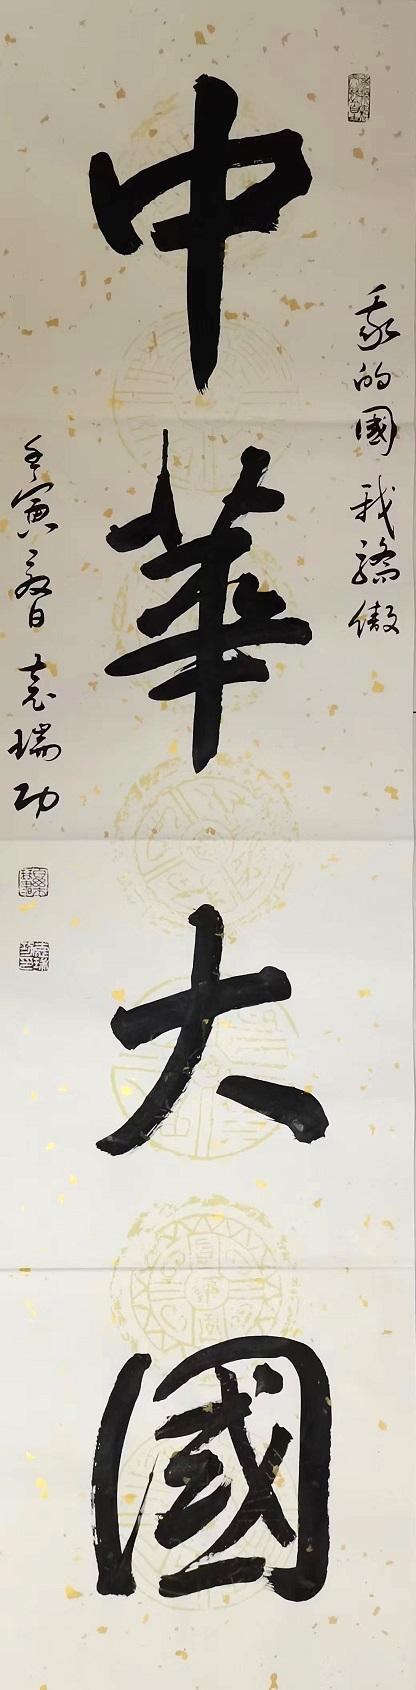 我的國 我驕傲
中華大國
壬寅 春日 袁瑞功